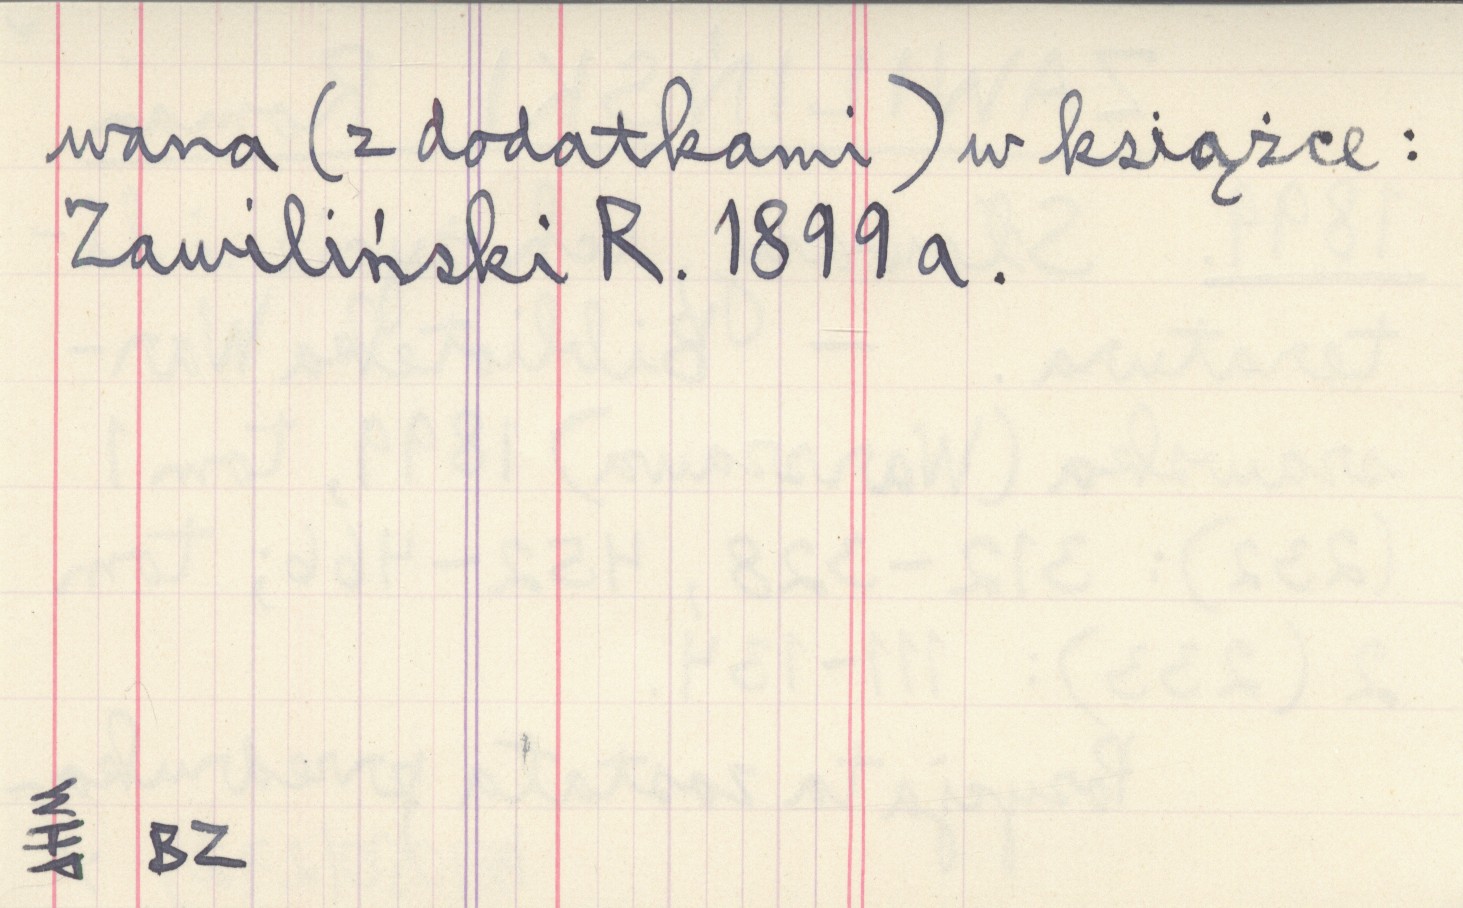 wana (z dodatkami) w książce:
Zawiliński R. 1899a.
BZ